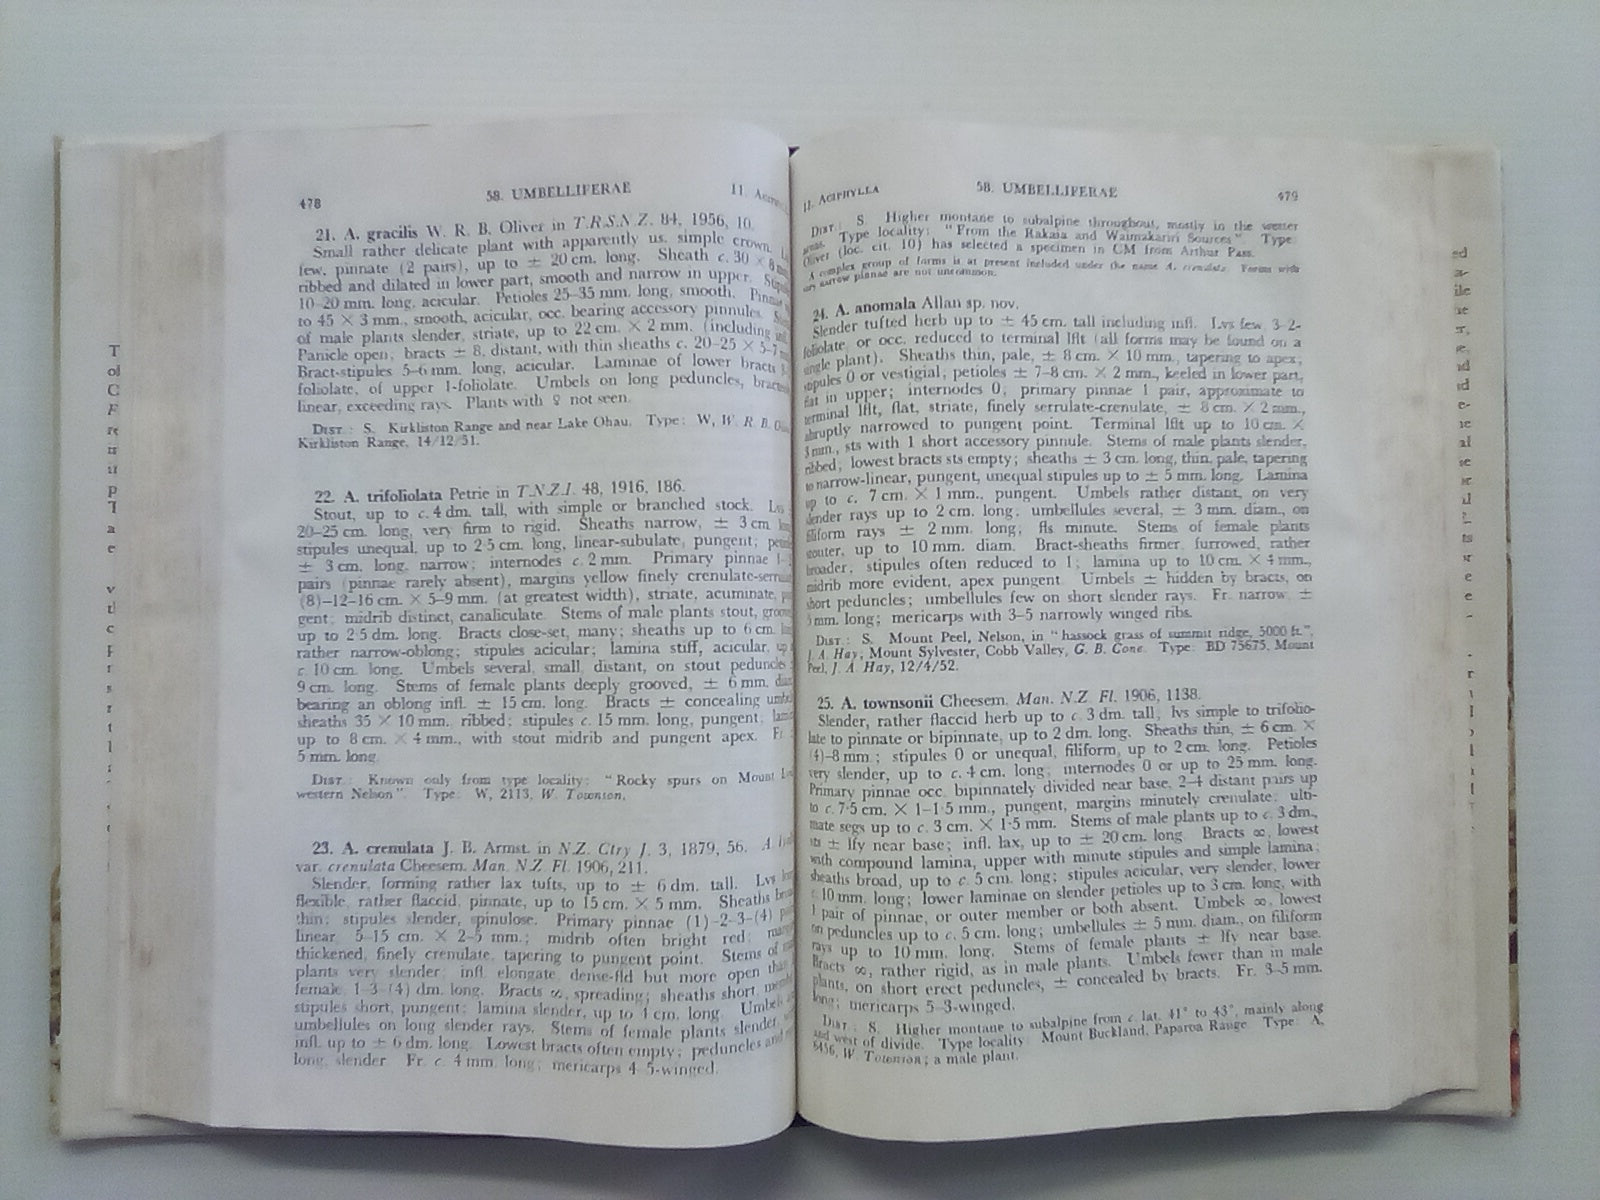 478
58. UMBELLIFERAE
11.
21. A. gracilis W. R. B. Oliver in T.R.S.N.Z. 84, 1956, 10.
Small rather delicate plant with apparently us. simple crown.
few, pinnate (2 pairs), up to ± 20 cm. long. Sheath c. 30 × 8
ribbed and dilated in lower part, smooth and narrow in upper.
10–20 mm. long, acicular. Petioles 25–35 mm. long, smooth.
to 45 × 3 mm., smooth, acicular, occ. bearing accessory pinnules.
of male plants slender, striate, up to 22 cm. × 2 mm. (including
Panicle open; bracts ± 8, distant, with thin sheaths c. 20–25 × 5–7
Bract-stipules 5–6 mm. long, acicular. Laminae of lower bracts
foliolate, of upper 1-foliolate. Umbels on long peduncles,
linear, exceeding rays. Plants with ♀ not seen.
DIST.: S. Kirkliston Range and near Lake Ohau. Type: W, W. R. B.
Kirkliston Range, 14/12/51.
22. A. trifoliolata Petrie in T.N.Z.I. 48, 1916, 186.
Stout, up to c. 4 dm. tall, with simple or branched stock. Lvs
20–25 cm. long, very firm to rigid. Sheaths narrow, ± 3 cm.
stipules unequal, up to 2·5 cm. long, linear-subulate, pungent;
± 3 cm. long, narrow; internodes c. 2 mm. Primary pinnae
pairs (pinnae rarely absent), margins yellow finely
(8)–12–16 cm. × 5–9 mm. (at greatest width), striate, acuminate,
gent; midrib distinct, canaliculate. Stems of male plants stout,
up to 2·5 dm. long. Bracts close-set, many; sheaths up to 6 cm.
rather narrow-oblong; stipules acicular; lamina stiff, acicular,
c. 10 cm. long. Umbels several, small, distant, on stout peduncles
9 cm. long. Stems of female plants deeply grooved, ± 6 mm.
bearing an oblong infl. ± 15 cm. long. Bracts ± concealing
sheaths 35 × 10 mm. ribbed; stipules c. 15 mm. long, pungent;
up to 8 cm. × 4 mm., with stout midrib and pungent apex.
5 mm. long.
DIST.: Known only from type locality: "Rocky spurs on Mount
western Nelson". Type: W, 2113, W. Townson,
23. A. crenulata J. B. Armst. in N.Z. Ctry J. 3, 1879, 56. A.
var. crenulata Cheesem. Man. N.Z. Fl. 1906, 211.
Slender, forming rather lax tufts, up to ± 6 dm. tall. Lvs
flexible, rather flaccid, pinnate, up to 15 cm. × 5 mm. Sheaths
thin; stipules slender, spinulose. Primary pinnae (1)–2–3–(4)
linear, 5–15 cm. × 2–5 mm.; midrib often bright red;
thickened, finely crenulate, tapering to pungent point. Stems of
plants very slender; infl. elongate, dense-fld but more open than
female, 1–3–(4) dm. long. Bracts ∞, spreading; sheaths short,
stipules short, pungent; lamina slender, up to 4 cm. long.
umbellules on long slender rays. Stems of female plants slender,
infl. up to ± 6 dm. long. Lowest bracts often empty; peduncles and
long, slender. Fr. c. 4 mm. long; mericarps 4–5-winged.
11. ACIPHYLLA
58. UMBELLIFERAE
479
DIST.: S. Higher montane to subalpine throughout, mostly in the wetter
areas. Type locality: "From the Rakaia and Waimakariri Sources" Type:
Oliver (loc. cit. 10) has selected a specimen in CM from Arthur Pass.
A complex group of forms is at present included under the name A. crenulata. Forms with
very narrow pinnae are not uncommon.
24. A. anomala Allan sp. nov.
Slender tufted herb up to ± 45 cm. tall including infl. Lvs few, 3–2-
foliolate, or occ. reduced to terminal lflt (all forms may be found on a
single plant). Sheaths thin, pale, ± 8 cm. × 10 mm., tapering to apex;
stipules 0 or vestigial; petioles ± 7–8 cm. × 2 mm., keeled in lower part,
flat in upper; internodes 0; primary pinnae 1 pair, approximate to
terminal lflt, flat, striate, finely serrulate-crenulate, ± 8 cm. × 2 mm.,
abruptly narrowed to pungent point. Terminal lflt up to 10 cm. ×
3 mm., sts with 1 short accessory pinnule. Stems of male plants slender,
ribbed; lowest bracts sts empty; sheaths ± 3 cm. long, thin, pale, tapering
to narrow-linear, pungent, unequal stipules up to ± 5 mm. long. Lamina
up to c. 7 cm. × 1 mm., pungent. Umbels rather distant, on very
slender rays up to 2 cm. long; umbellules several, ± 3 mm. diam., on
filiform rays ± 2 mm. long; fls minute. Stems of female plants
stouter, up to 10 mm. diam. Bract-sheaths firmer, furrowed, rather
broader, stipules often reduced to 1; lamina up to 10 cm. × 4 mm.,
midrib more evident, apex pungent. Umbels ± hidden by bracts, on
short peduncles; umbellules few on short slender rays. Fr. narrow, ±
5 mm. long; mericarps with 3–5 narrowly winged ribs.
DIST.: S. Mount Peel, Nelson, in "hassock grass of summit ridge, 5000 ft.",
J. A. Hay; Mount Sylvester, Cobb Valley, G. B. Cone. Type: BD 75675, Mount
Peel, J. A. Hay, 12/4/52.
25. A. townsonii Cheesem. Man. N.Z. Fl. 1906, 1138.
Slender, rather flaccid herb up to c. 3 dm. tall; lvs simple to trifolio-
late to pinnate or bipinnate, up to 2 dm. long. Sheaths thin, ± 6 cm. ×
(4)–8 mm.; stipules 0 or unequal, filiform, up to 2 cm. long. Petioles
very slender, up to c. 4 cm. long; internodes 0 or up to 25 mm. long.
Primary pinnae occ. bipinnately divided near base, 2–4 distant pairs up
to c. 7·5 cm. × 1–1·5 mm., pungent, margins minutely crenulate; ulti-
mate segs up to c. 3 cm. × 1·5 mm. Stems of male plants up to c. 3 dm.,
sts ± lfy near base; infl. lax, up to ± 20 cm. long. Bracts ∞, lowest
with compound lamina, upper with minute stipules and simple lamina;
sheaths broad, up to c. 5 cm. long; stipules acicular, very slender, lower
c. 10 mm. long; lower laminae on slender petioles up to 3 cm. long, with
1 pair of pinnae, or outer member or both absent. Umbels ∞, lowest
on peduncles up to c. 5 cm. long; umbellules ± 5 mm. diam., on filiform
rays up to 10 mm. long. Stems of female plants ± lfy near base.
Bracts ∞, rather rigid, as in male plants. Umbels fewer than in male
plants, on short erect peduncles, ± concealed by bracts. Fr. 3–5 mm.
long; mericarps 5–3-winged.
DIST.: S. Higher montane to subalpine from c. lat. 41° to 43°, mainly along
and west of divide. Type locality: Mount Buckland, Paparoa Range. Type: A,
6456, W. Townson; a male plant.